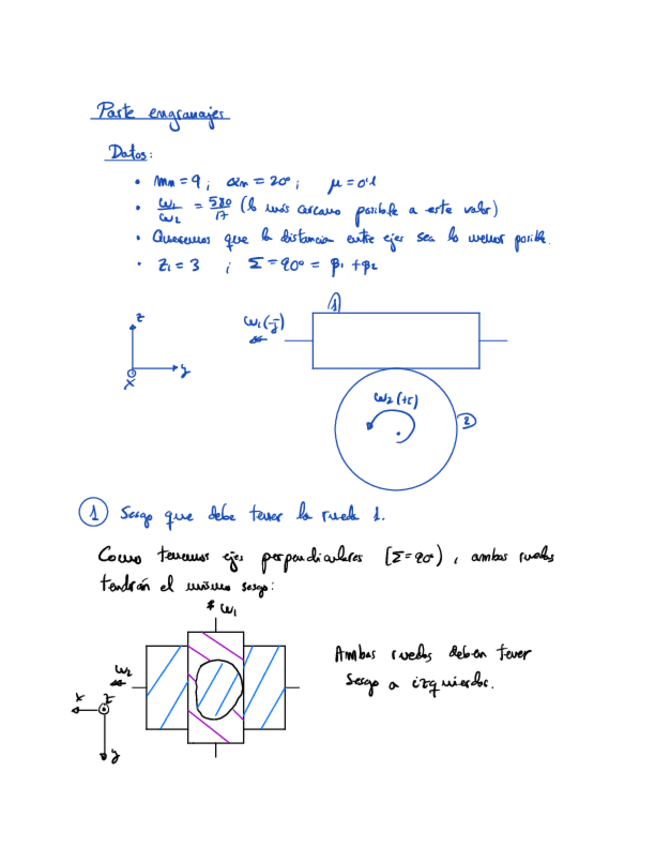 Parte engranajes
Datos:
• mn = 9 ; αn = 20° ; μ = 0'1
• ω1/ω2 = 580/17 (lo más cercano posible a este valor)
• Queremos que la distancia entre ejes sea lo menor posible.
• Z1 = 3 ; Σ = 90° = β1 + β2
1
z
y
x
ω1(-j)
ω2(+i)
2
1 Sesgo que debe tener la rueda 1.
Como tenemos ejes perpendiculares [Σ=90°], ambas ruedas
tendrán el mismo sesgo:
ω1
ω2
x
z
y
Ambas ruedas deben tener
sesgo a izquierdas.